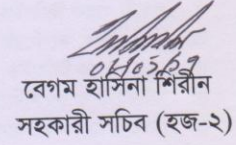 বেগম হাসিনা শিরীন
সহকারী সচিব (হজ-২)